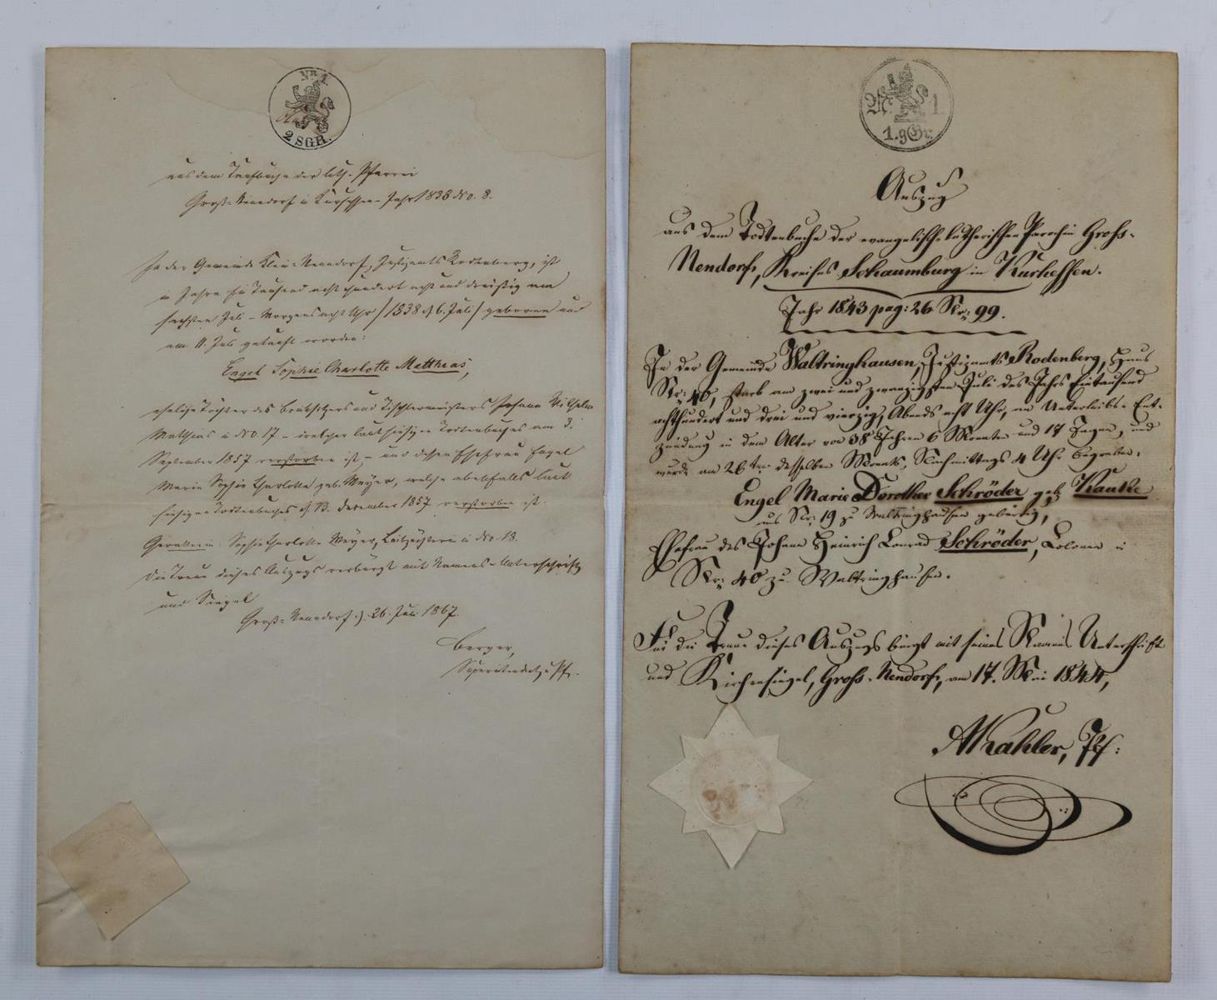 Nr. 1
2 SGR.
aus dem Taufbuche der luth. Pfarrei
Groß-Nenndorf in Kurhessen Jahr 1838 No. 8.
In der Gemeinde Klein-Nenndorf, Justizamts Rodenberg, ist
im Jahre Ein Tausend acht hundert acht und dreißig am
sechsten Juli – Morgens acht Uhr / 1838 d. 6. Juli / geboren und
am 11. Juli getauft worden:
Engel Sophie Charlotte Matthias,
eheliche Tochter des und Tischlermeisters Johann Wilhelm
Matthias in No. 17 – welcher laut hiesigen Todtenbuches am 3.
September 1857 verstorben ist, – und dessen Ehefrau Engel
Maria Sophie Charlotte geb. Meyer, welche ebenfalls laut
hiesigen Todtenbuches d. 13. December 1857 verstorben ist.
Gevatterin: Sophie Charlotte Meyer, in No. 13.
Die Treue dieses Auszugs verbürgt mit Namens-Unterschrift
und Siegel
Groß-Nenndorf, d. 26. Juni 1867
Berger,
1. gGr.
Auszug
aus dem Todtenbuche der evangelisch lutherischen Parochie Groß-
Nendorf, Kreises Schaumburg in Kurhessen.
Jahr 1843 pag: 26 Nr: 99.
In der Gemeinde Waltringhausen, Justizamts Rodenberg, Haus
Nr: 40, starb am zwei und zwanzigsten Juli des Jahrs Eintausend
achthundert und drei und vierzig, Abends acht Uhr, an Unterleibs-Ent-
zündung in dem Alter von 38 Jahren 6 Monaten und 17 Tagen, und
wurde am 26ten desselben Monats, Nachmittags 4 Uhr begraben,
Engel Marie Dorothee Schröder, geb. Hauke
aus Nr: 19 zu Waltringhausen gebürtig,
Ehefrau des Johann Heinrich Conrad Schröder, Colonen in
Nr: 40 zu Waltringhausen.
Für die Treue dieses Auszugs bürgt mit seines Namens Unterschrift
und Kirchensiegel, Groß-Nendorf, am 17. Mai 1844,